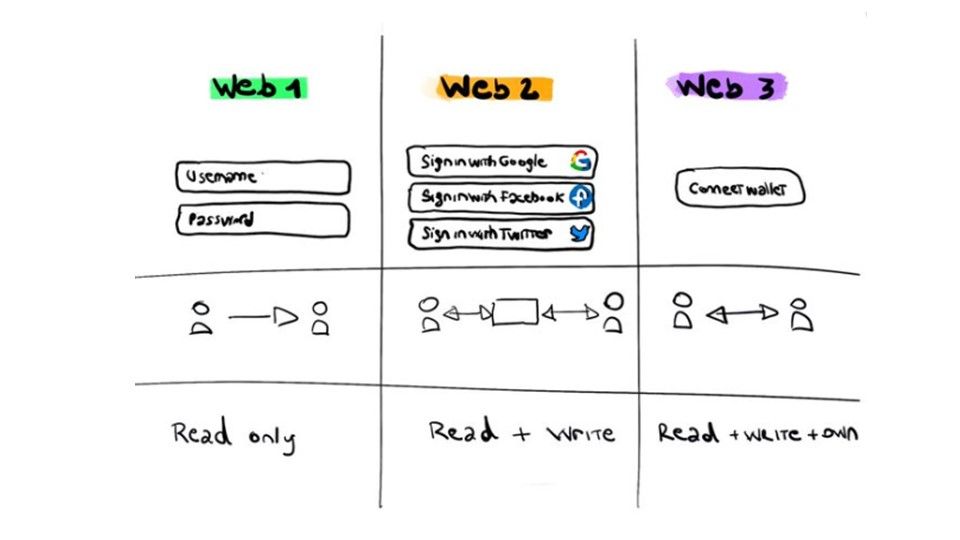 Web 1
Web 2
Web 3
Username
Password
Sign in with Google
Sign in with Facebook
Sign in with Twitter
Connect wallet
Read only
Read + write
Read + write + own